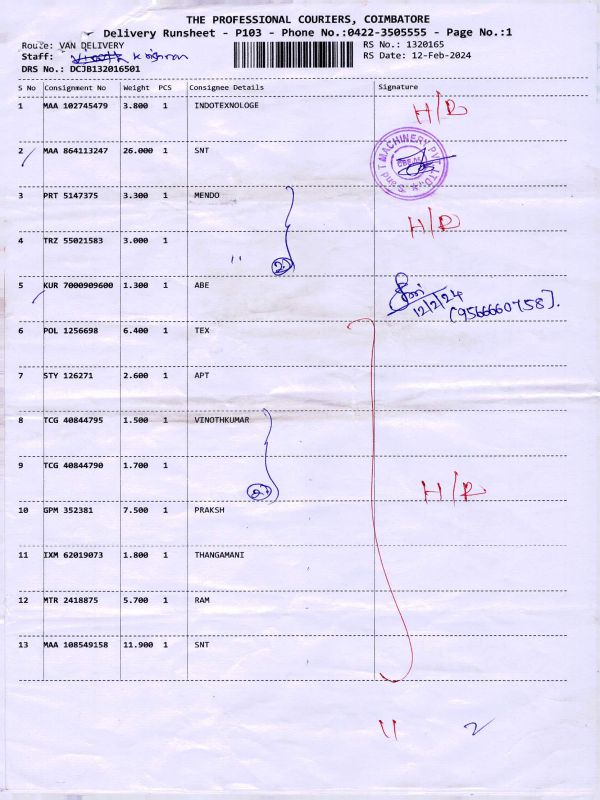 THE PROFESSIONAL COURIERS, COIMBATORE
Delivery Runsheet - P103 - Phone No.:0422-3505555 - Page No.:1
Route: VAN DELIVERY RS No.: 1320165
Staff: Krishnan RS Date: 12-Feb-2024
DRS No.: DCJB132016501
S No Consignment No Weight PCS Consignee Details Signature
1 MAA 102745479 3.800 1 INDOTEXNOLOGE H/R
2 MAA 864113247 26.000 1 SNT S and T MACHINERY PVT. LTD.
3 PRT 5147375 3.300 1 MENDO H/R
4 TRZ 55021583 3.000 1 " 2
5 KUR 7000909600 1.300 1 ABE 12/2/24
[9566660758].
6 POL 1256698 6.400 1 TEX
7 STY 126271 2.600 1 APT
8 TCG 40844795 1.500 1 VINOTHKUMAR
9 TCG 40844790 1.700 1 2 H/R
10 GPM 352381 7.500 1 PRAKSH
11 IXM 62019073 1.800 1 THANGAMANI
12 MTR 2418875 5.700 1 RAM
13 MAA 108549158 11.900 1 SNT
11 2